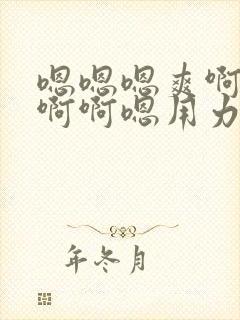 嗯嗯嗯爽啊
啊啊嗯用力
年冬月